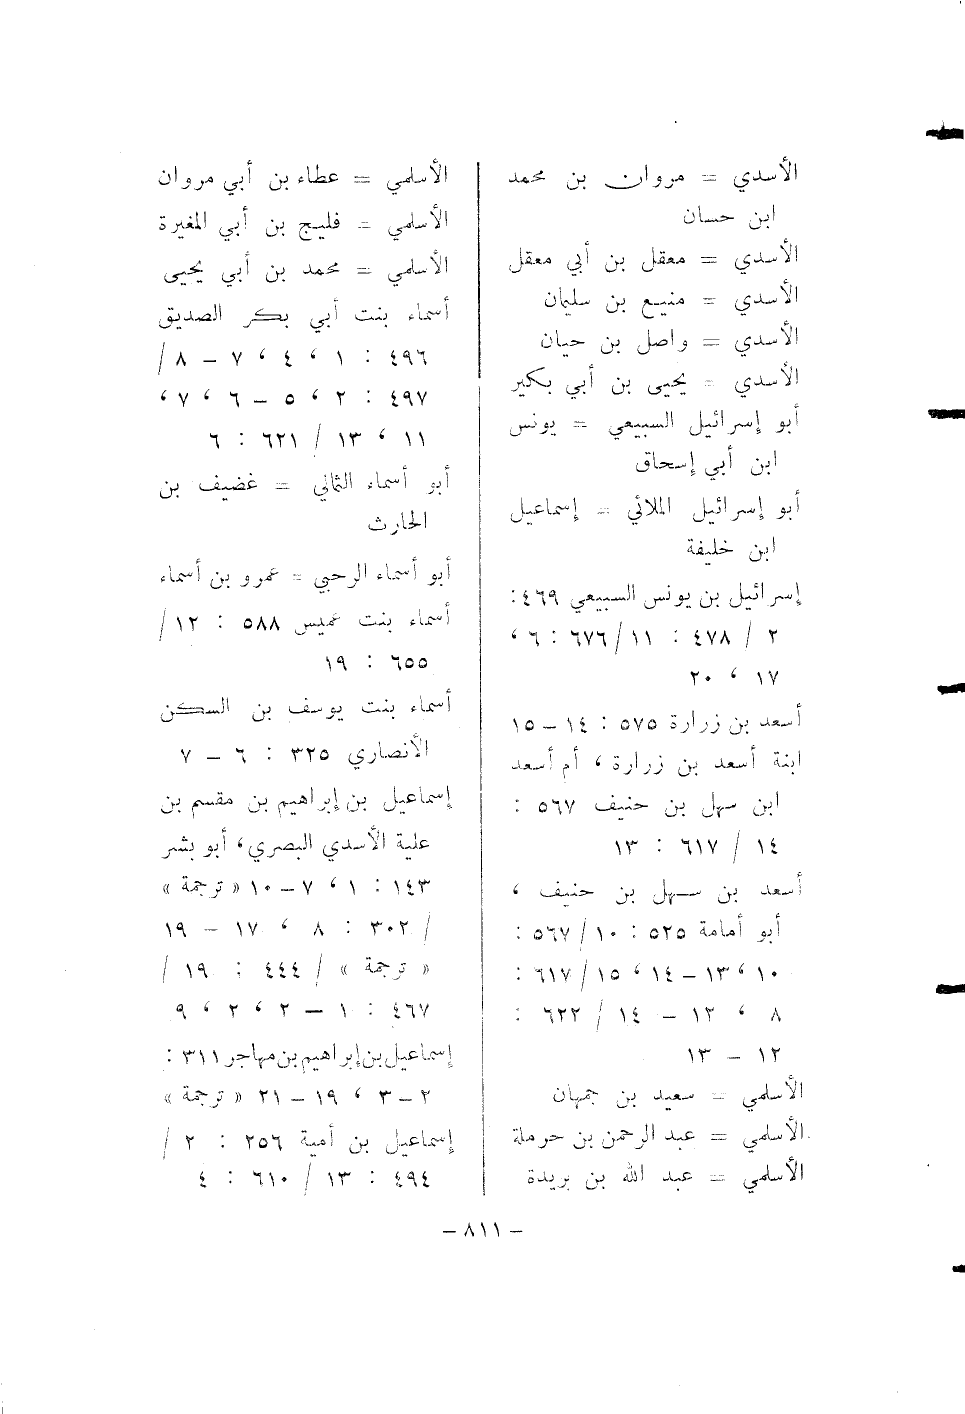 الأسدي = مروان بن محمد
ابن حسان
الأسدي = معقل بن أبي معقل
الأسدي = منيع بن سليمان
الأسدي = واصل بن حيان
الأسدي = يحيى بن أبي بكير
أبو إسرائيل السبيعي = يونس
ابن أبي إسحاق
أبو إسرائيل الملائي = إسماعيل
ابن خليفة
إسرائيل بن يونس السبيعي ٤٦٩ :
٢ / ٤٧٨ : ١١ / ٦٧٦ : ٦ ،
١٧ ، ٢٠
أسعد بن زرارة ٥٧٥ : ١٤ – ١٥
ابنة أسعد بن زرارة ، أم أسعد
ابن سهل بن حنيف ٥٦٧ :
١٤ / ٦١٧ : ١٣
أسعد بن سهل بن حنيف ،
أبو أمامة ٥٢٥ : ١٠ / ٥٦٧ :
١٠ ، ١٣ – ١٤ ، ١٥ / ٦١٧ :
٨ ، ١٢ – ١٤ / ٦٢٢ :
١٢ – ١٣
الأسلمي = سعيد بن جمهان
الأسلمي = عبد الرحمن بن حرملة
الأسلمي = عبد الله بن بريدة
الأسلمي = عطاء بن أبي مروان
الأسلمي = فليج بن أبي المغيرة
الأسلمي = محمد بن أبي يحيى
أسماء بنت أبي بكر الصديق
٤٩٦ : ١ ، ٤ ، ٧ – ٨ /
٤٩٧ : ٢ ، ٥ – ٦ ، ٧ ،
١١ ، ١٣ / ٦٢١ : ٦
أبو أسماء الثمالي = غضيف بن
الحارث
أبو أسماء الرحبي = عمرو بن أسماء
أسماء بنت عميس ٥٨٨ : ١٢ /
٦٥٥ : ١٩
أسماء بنت يوسف بن السكن
الأنصاري ٣٢٥ : ٦ – ٧
إسماعيل بن إبراهيم بن مقسم بن
علية الأسدي البصري ، أبو بشر
١٤٣ : ١ ، ٧ – ١٠ « ترجمة »
/ ٣٠٢ : ٨ ، ١٧ – ١٩
« ترجمة » / ٤٤٤ : ١٩ /
٤٦٧ : ١ – ٢ ، ٢ ، ٩
إسماعيل بن إبراهيم بن مهاجر ٣١١ :
٢ – ٣ ، ١٩ – ٢١ « ترجمة »
إسماعيل بن أمية ٢٥٦ : ٢ /
٤٩٤ : ١٣ / ٦١٠ : ٤
– ٨١١ –